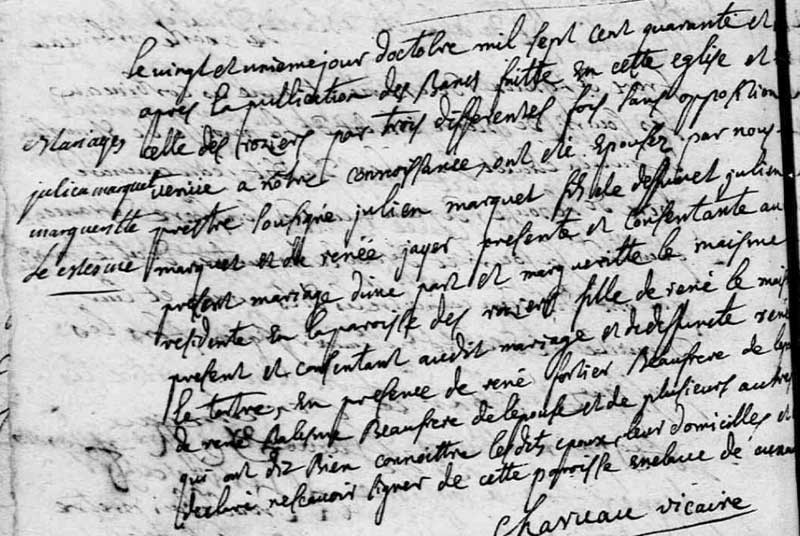 Le vingt et unieme jour doctobre mil sept cent quarante et
apres la publication des Bancs faitte En cette eglise et
celle des roziers par trois differentes fois sans opposition
venue a notre connoissance, ont eté Epousez par nous
prestre sousigné julien marquet fils de deffunct julien
marquet et de renée jayer presente et consentante au
present mariage dune part et margueritte le maisme
residente En la paroisse des roziers fille de rené le mais
present et consentant audit mariage et de deffuncte rené
le tertre, En presence de rené fortier Beaufrere de
de rené Beaufrere de lepouse et de plusieurs autres
qui ont dit Bien connoittre lesdits epoux leur domicilles et
declaré ne scavoir signer de cette paroisse
vicaire
Mariages
julien marquet
margueritte
le